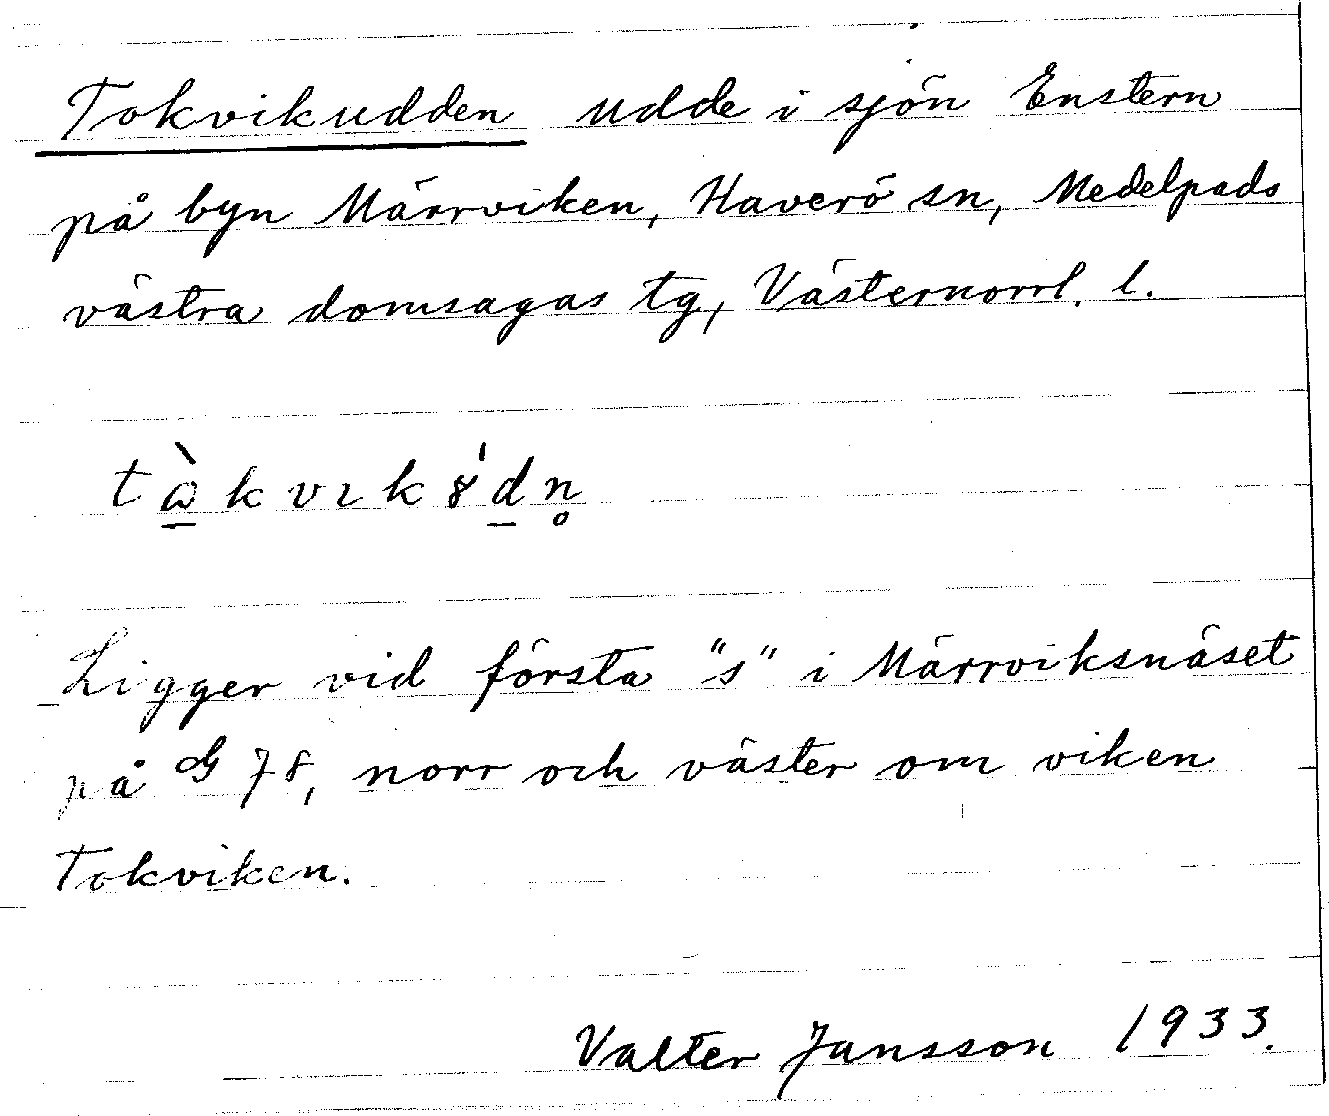 Tokvikudden udde i sjön Enstern
på byn Märrviken, Haverö sn, Medelpads
västra domsagas tg, Västernorrl. l.
tὰ̱kvıkȣ́d̠n̥
Ligger vid första "s" i Märrviksnäset
på G 78, norr och väster om viken
Tokviken.
Valter Jansson 1933.